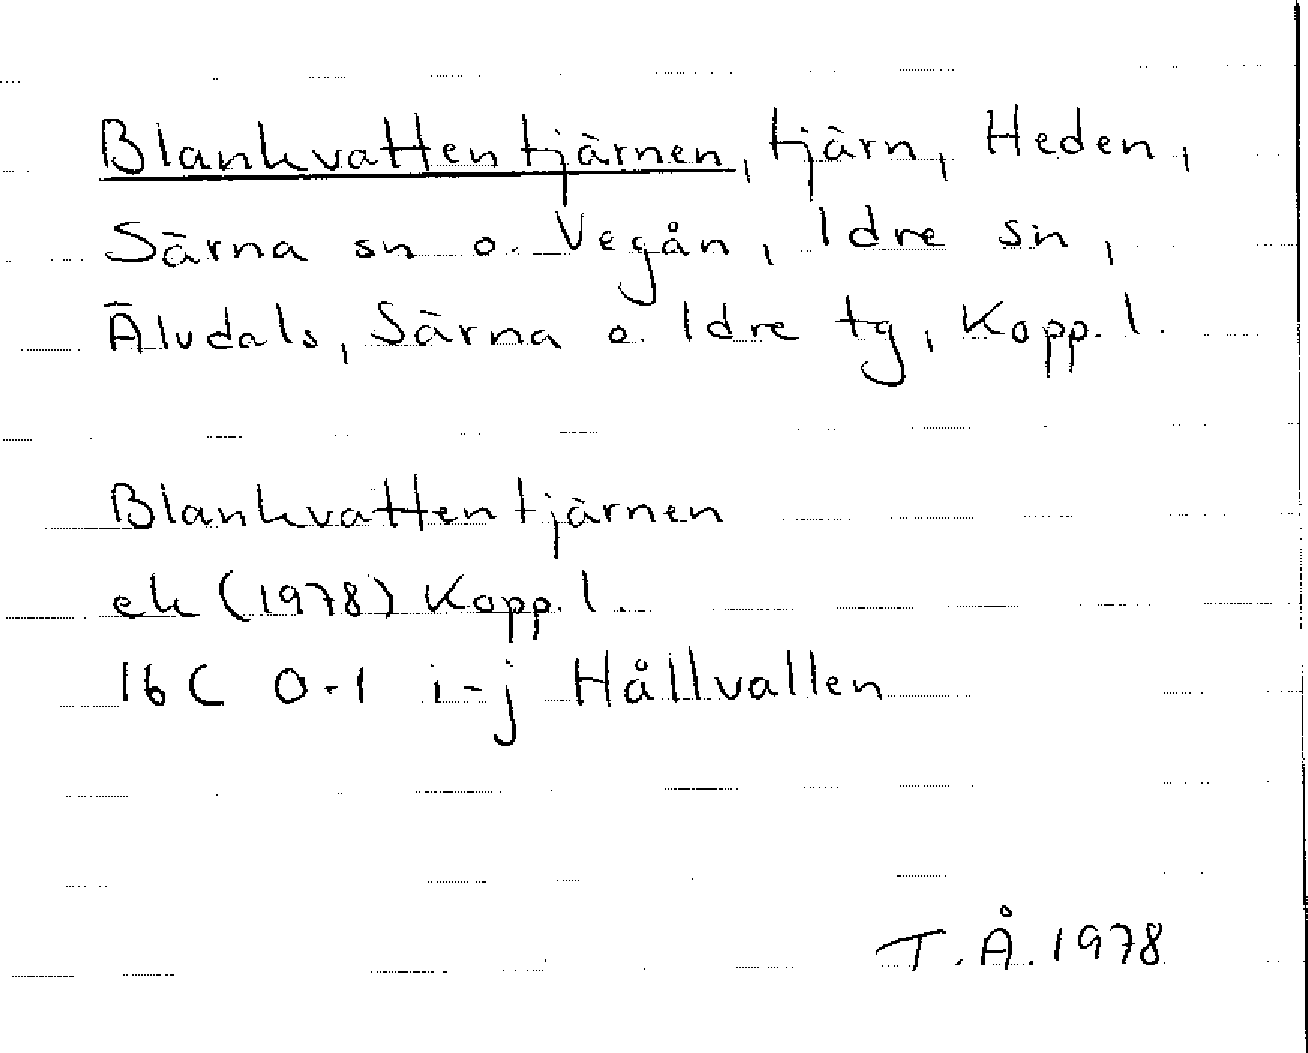 Blankvattentjärnen, tjärn, Heden,
Särna sn o. Vegån, Idre sn,
Älvdals, Särna o. Idre tg, Kopp. l.
Blankvattentjärnen
ek (1978) Kopp. l.
16C 0-1 i-j Hållvallen
T.Å. 1978